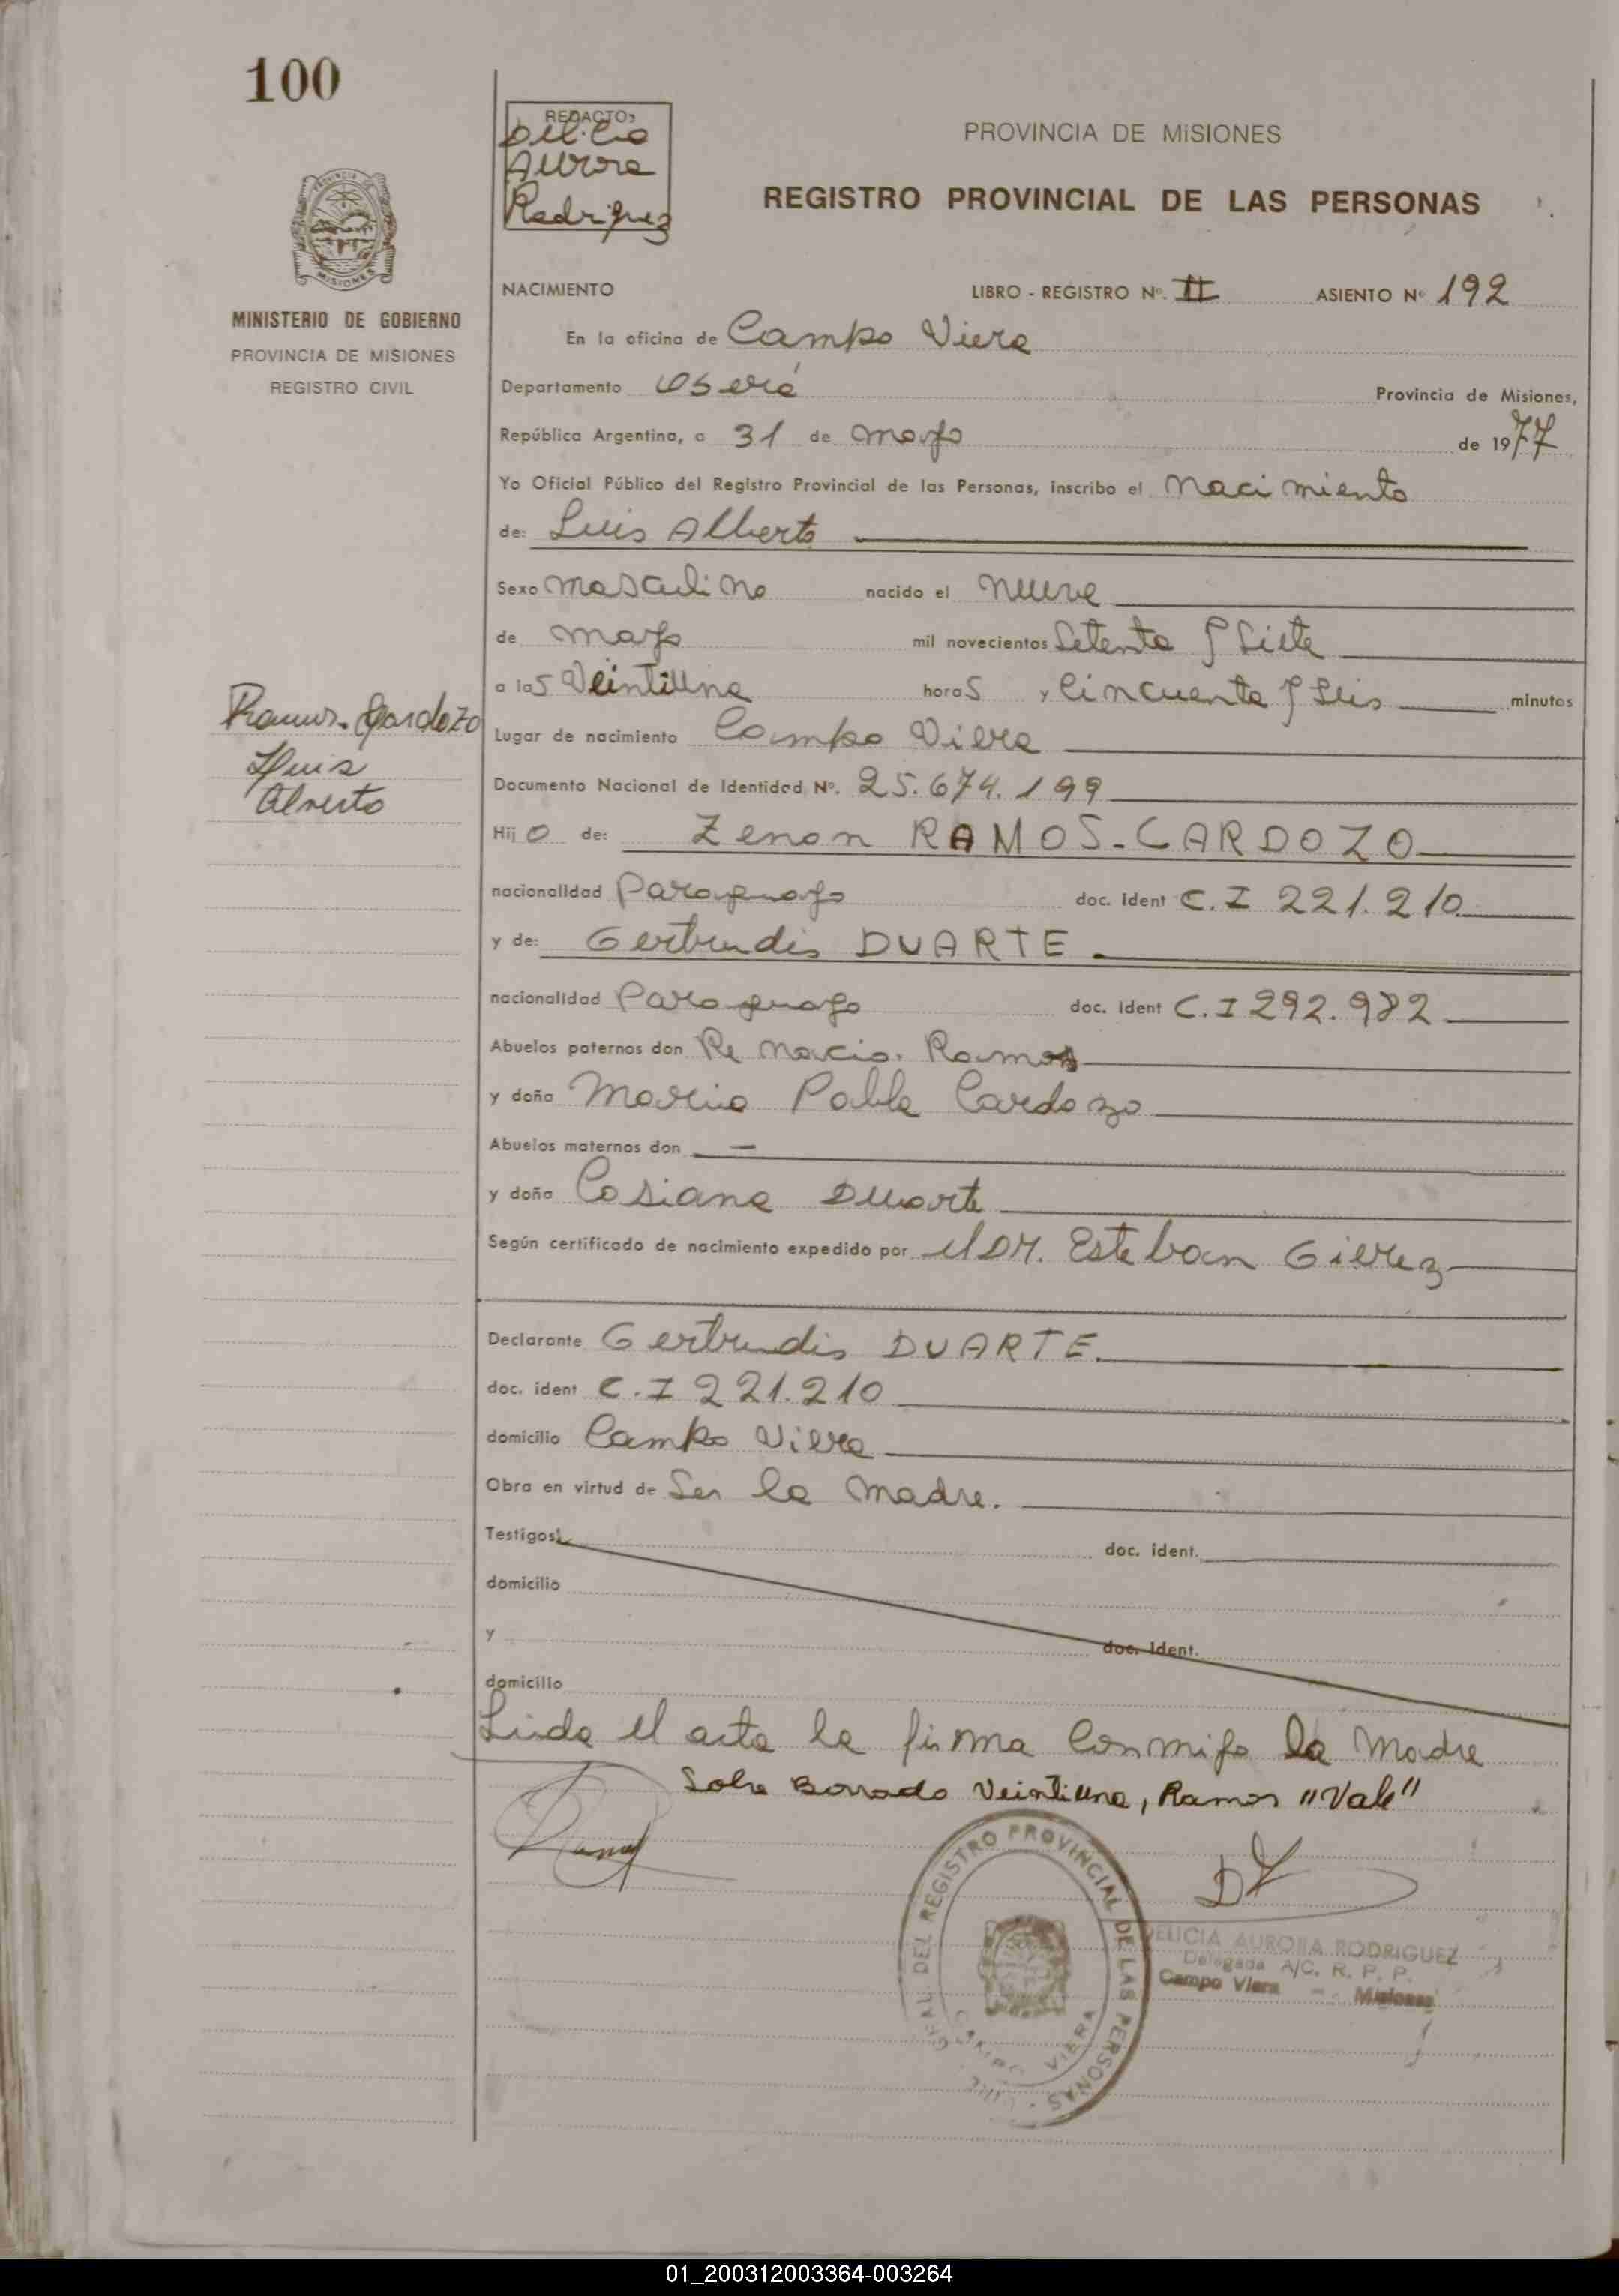 100
REDACTO,
Delicia
Aurora
Rodriguez
PROVINCIA DE MISIONES
REGISTRO PROVINCIAL DE LAS PERSONAS
PROVINCIA DE
MISIONES
MINISTERIO DE GOBIERNO
PROVINCIA DE MISIONES
REGISTRO CIVIL
NACIMIENTO LIBRO - REGISTRO Nº. II ASIENTO Nº 192
En la oficina de Campo Viera
Departamento Oberá Provincia de Misiones,
República Argentina, a 31 de mayo de 1977
Yo Oficial Público del Registro Provincial de las Personas, inscribo el Nacimiento
de: Luis Alberto
Sexo masculino nacido el nueve
de mayo mil novecientos Setenta y Siete
a las Veintiuna horas y Cincuenta y Seis minutos
Ramos-Cardozo
Luis
Alberto
Lugar de nacimiento Campo Viera
Documento Nacional de Identidad Nº. 25.674.199
Hijo de: Zenon RAMOS-CARDOZO
nacionalidad Paraguayo doc. ident C.I 221.210
y de: Gertrudis DUARTE
nacionalidad Paraguayo doc. ident C.I 292.982
Abuelos paternos don Re nacio. Ramos
y doña Maria Pabla Cardozo
Abuelos maternos don —
y doña Casiana Duarte
Según certificado de nacimiento expedido por el Dr. Esteban Gierez
Declarante Gertrudis DUARTE.
doc. ident C.I 221.210
domicilio Campo Viera
Obra en virtud de Ser la madre.
Testigos: doc. ident.
domicilio
y doc. ident.
domicilio
Leida el acta la firma Conmigo la Madre
Sobre Borrado Veintiuna, Ramos "Vale"
GRAL. DEL REGISTRO PROVINCIAL DE LAS PERSONAS
CAMPO VIERA
DELICIA AURORA RODRIGUEZ
Delegada A/C. R. P. P.
Campo Viera - Misiones
01_200312003364-003264